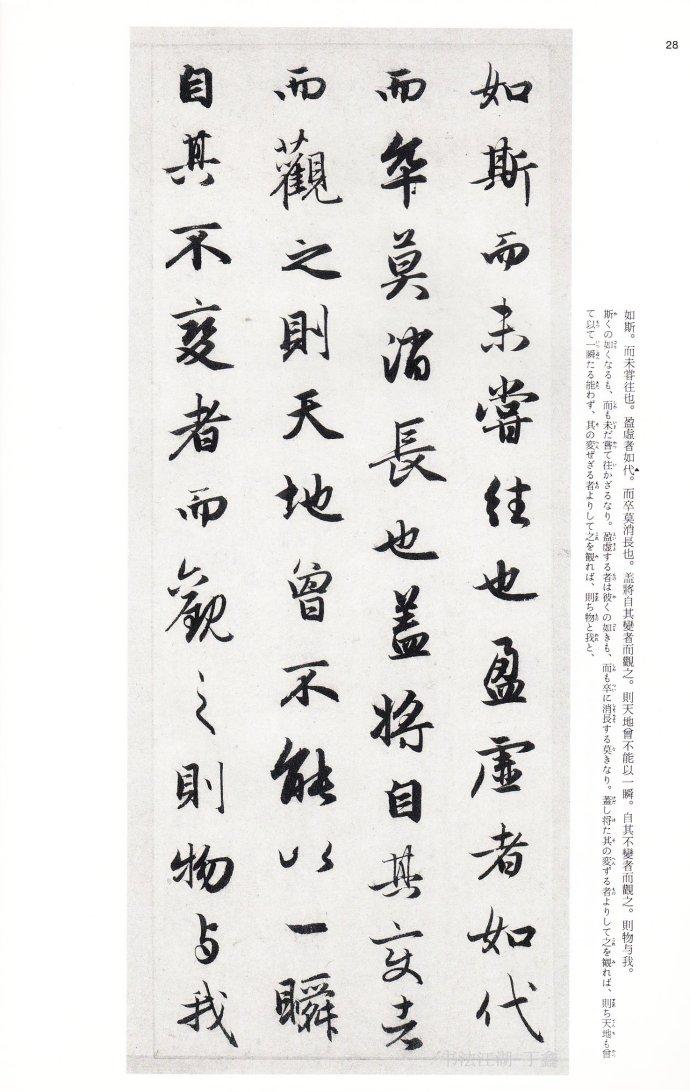 28
如斯而未嘗往也盈虛者如代
而卒莫消長也蓋將自其变者
而觀之則天地曾不能以一瞬
自其不變者而觀之則物与我
如斯。而未嘗往也。盈虛者如代。而卒莫消長也。盖將自其變者而觀之。則天地曾不能以一瞬。自其不變者而觀之。則物与我。
斯くの如くなるも、而も未だ嘗て往かざるなり。盈虚する者は彼くの如きも、而も卒に消長する莫きなり。蓋し将た其の変ずる者よりして之を観れば、則ち天地も曾
て以て一瞬たる能わず、其の変ぜざる者よりして之を観れば、則ち物と我と、
书法江湖-丁鑫